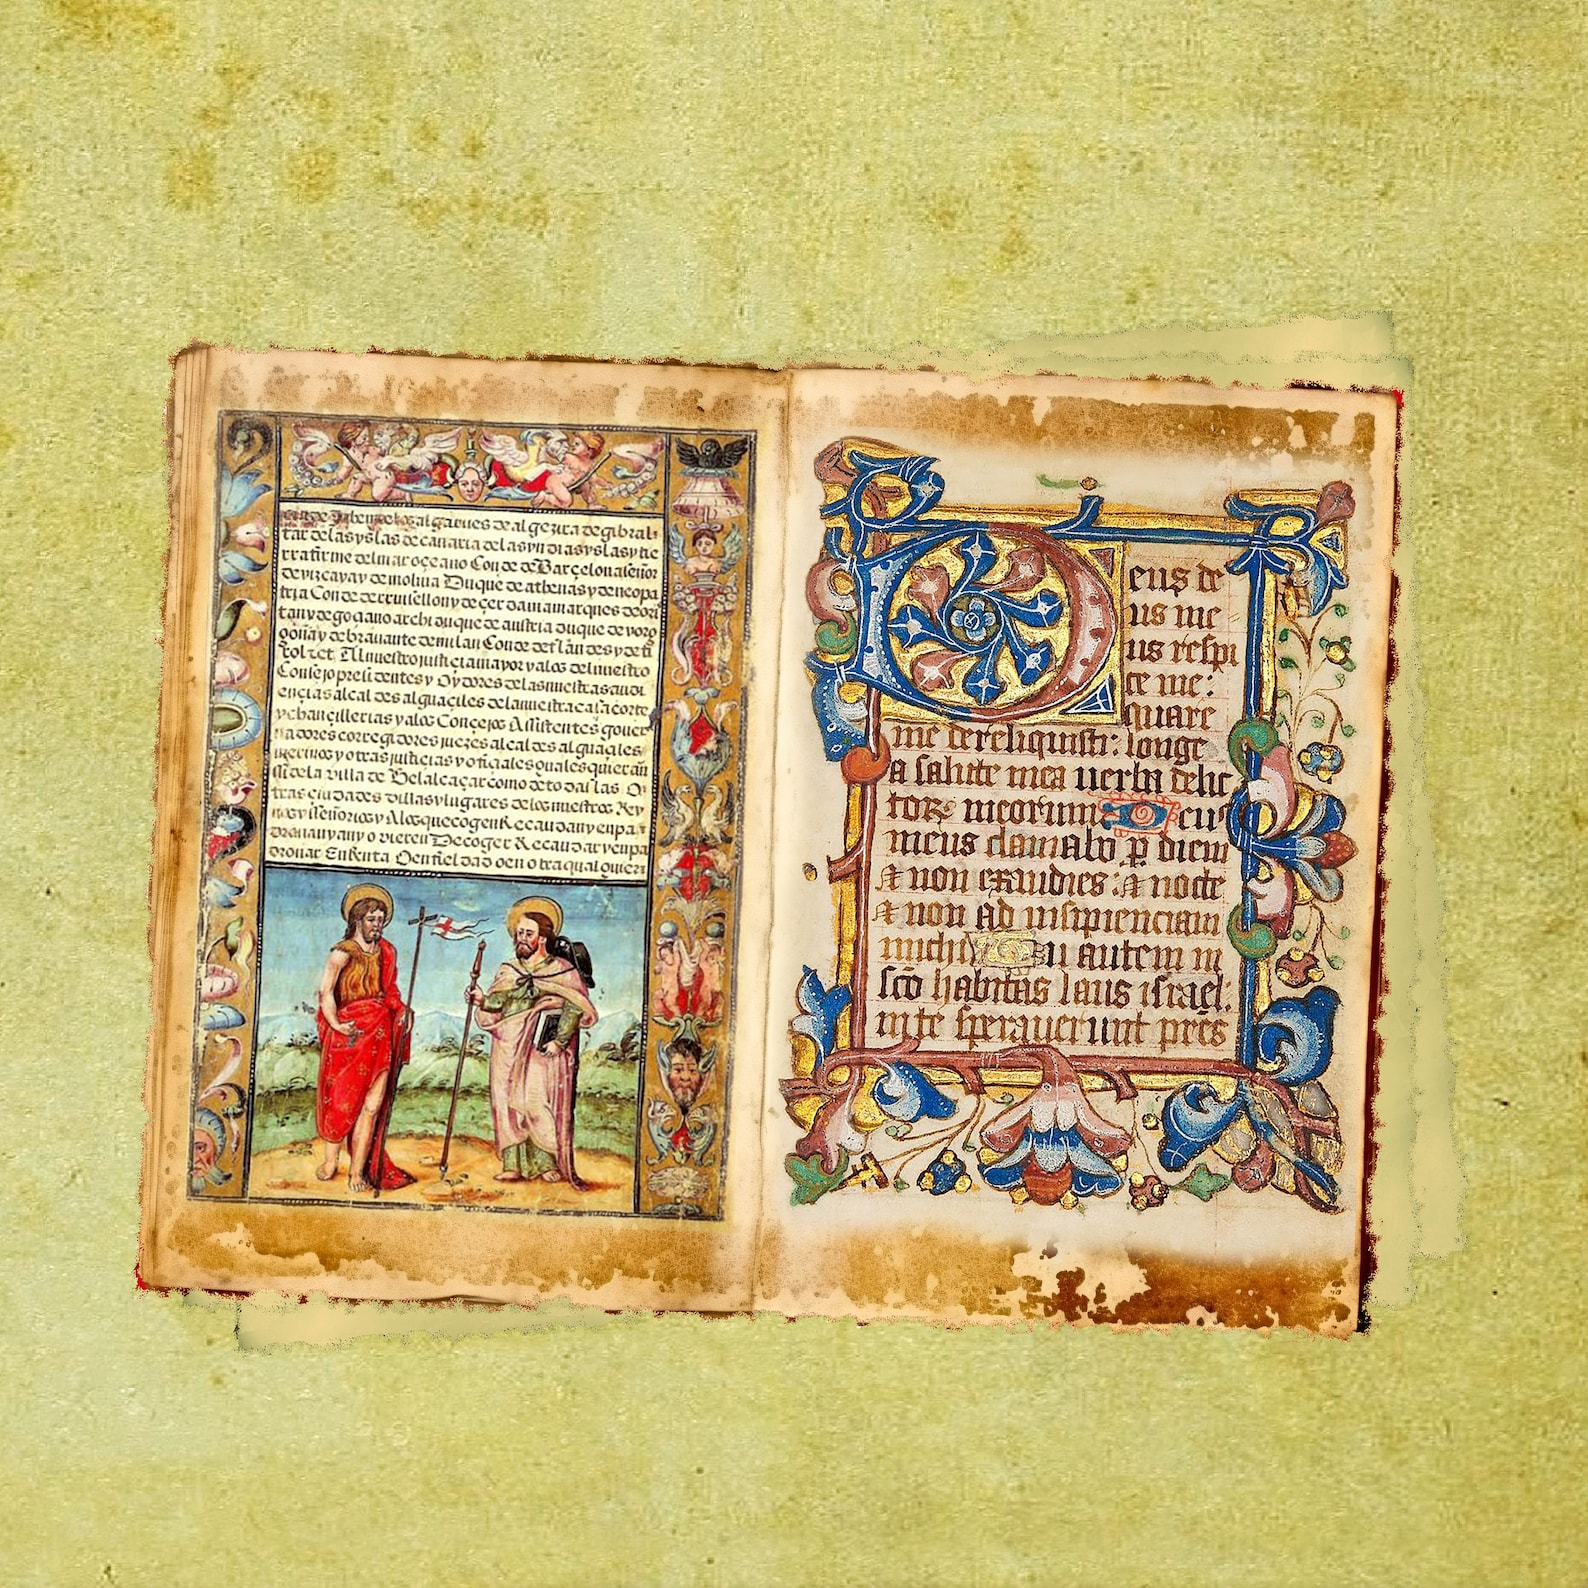 de los algarues de algezira de gibral-
tar de las yslas de canaria de las yndias yslas y tie
rra firme del mar oçeano Conde de Barçelona señor
de vizcaya y de molina Duque de athenas y de neopa
tria Conde de rruisellon y de çerdania marques de ori
tan y de goçiano archiduque de austria duque de vorg
goña y de brauante de milan Conde de flandes y de ti
rol ret. Al nuestro justicia mayor y a los del nuestro
Consejo presidentes y Oydores de las nuestras audi
ençias alcaldes alguaçiles de la nuestra casa corte
y chançillerias y a los Conçejos Assistentes gouer
nadores corregidores juezes alcaldes alguaçiles
merinos y otras justicias y ofiçiales quales quier asi
de la villa de Belalcaçar como de todas las O
tras ciudades villas y lugares de los nuestros Rey
nos y señorios y A los que cogen Recaudan y enpa
dronan y an o vieren De coger Recaudar y enpa
dronar En Renta O en fieldad o en otra qualquier
Deus de
us me
us respi
ce me:
quare
me dereliquisti: longe
a salute mea uerba delic
torꝝ meorum Deus
meus clamabo ꝑ diem
⁊ non exaudies: ⁊ nocte
⁊ non ad insipienciam
michi Tu autem in
sc̄o habitas laus israel:
in te sperauerunt pr̄es